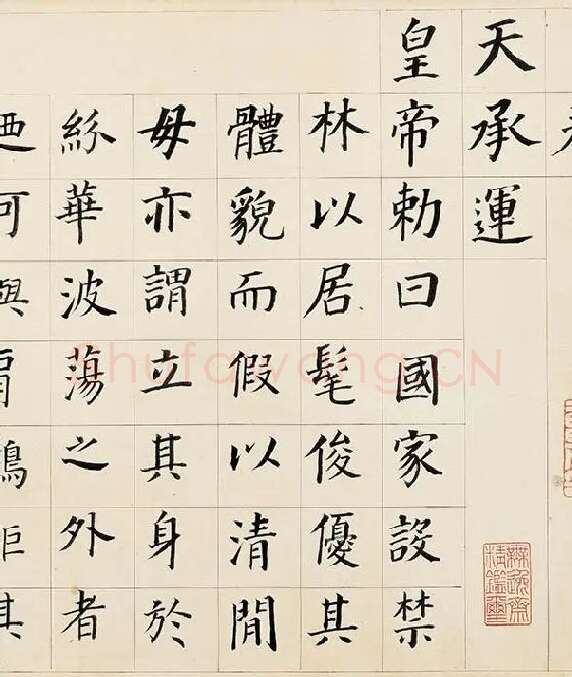 天承運
皇帝勅曰國家設禁
林以居髦俊優其
體貌而假以清閒
毋亦謂立其身於
紛華波蕩之外者
迺可與
其
無逸齋精鑑璽
Shufawang.CN